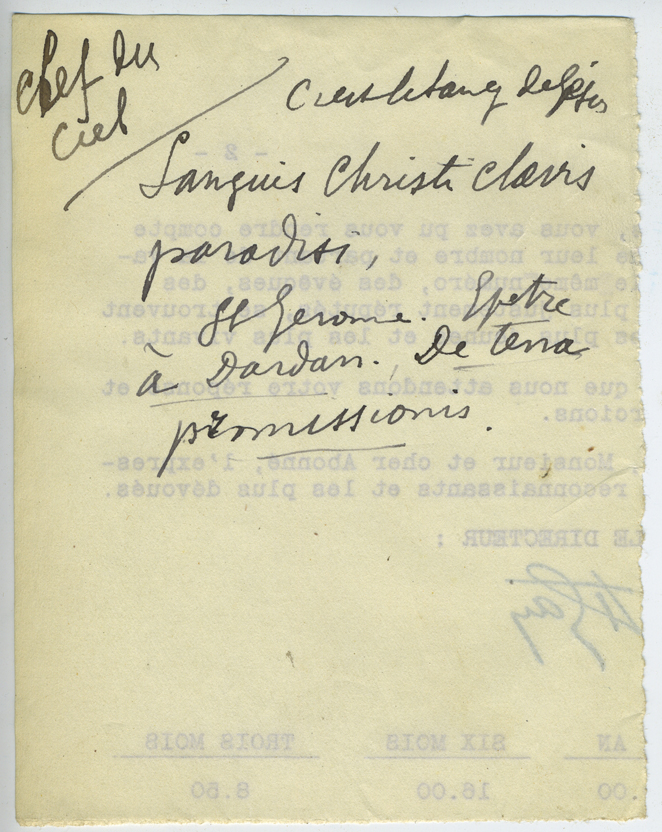 Chef du
ciel
C'est le sang de Jésus
Sanguis Christi clavis
paradisi,
St Jerome. Epitre
à Dardan. De terra
promissionis.
- 2 -
, vous avez pu vous rendre compte
de leur nombre et
le même numéro, des évêques, des
plus réputés, se trouvent
les plus jeunes et les plus vivants.
que nous attendons votre réponse et
croions.
Monsieur et cher Abonné, l'expres-
reconnaissants et les plus dévoués.
LE DIRECTEUR :
AN SIX MOIS TROIS MOIS
.00 16.00 8.50